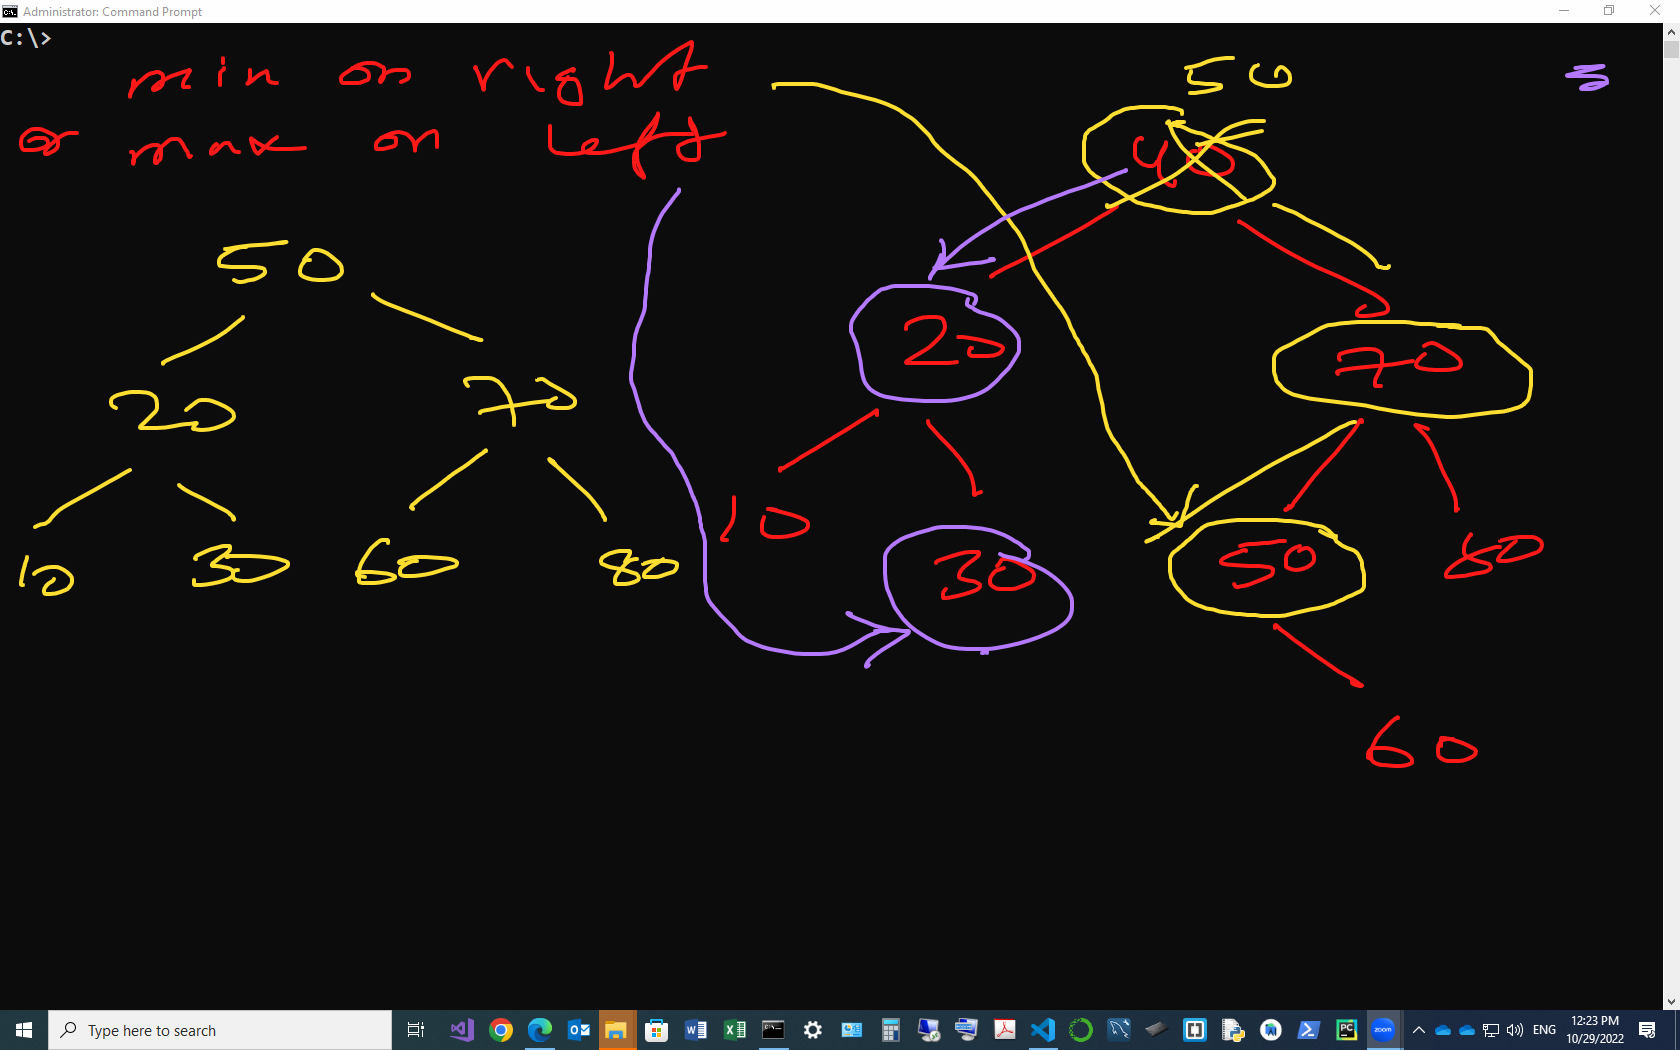 Administrator: Command Prompt
C:\>
min on right
or max on left
50
40
20
70
10
30
50
80
60
50
20
70
10
30
60
80
Type here to search
ENG
12:23 PM
10/29/2022